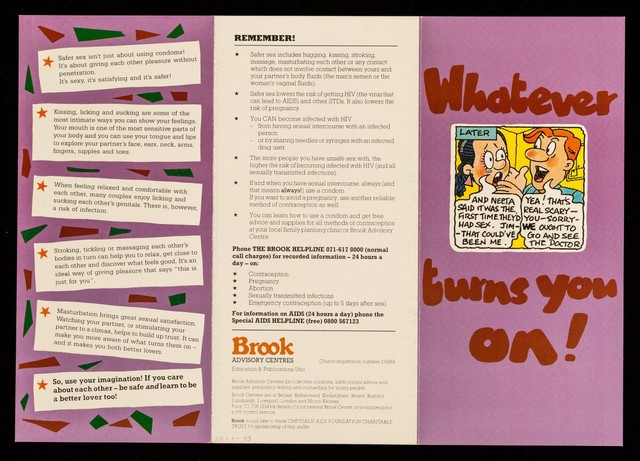 Safer sex isn't just about using condoms!
It's about giving each other pleasure without
penetration.
It's sexy, it's satisfying and it's safer!
Kissing, licking and sucking are some of the
most intimate ways you can show your feelings.
Your mouth is one of the most sensitive parts of
your body and you can use your tongue and lips
to explore your partner's face, ears, neck, arms,
fingers, nipples and toes.
When feeling relaxed and comfortable with
each other, many couples enjoy licking and
sucking each other's genitals. There is, however,
a risk of infection.
Stroking, tickling or massaging each other's
bodies in turn can help you to relax, get close to
each other and discover what feels good. It's an
ideal way of giving pleasure that says "this is
just for you".
Masturbation brings great sexual satisfaction.
Watching your partner, or stimulating your
partner to a climax, helps to build up trust. It can
make you more aware of what turns them on –
and it makes you both better lovers.
So, use your imagination! If you care
about each other – be safe and learn to be
a better lover too!
REMEMBER!
★ Safer sex includes hugging, kissing, stroking,
massage, masturbating each other or any contact
which does not involve contact between yours and
your partner's body fluids (the man's semen or the
woman's vaginal fluids).
★ Safer sex lowers the risk of getting HIV (the virus that
can lead to AIDS) and other STDs. It also lowers the
risk of pregnancy.
★ You CAN become infected with HIV
– from having sexual intercourse with an infected
person
– or by sharing needles or syringes with an infected
drug user
★ The more people you have unsafe sex with, the
higher the risk of becoming infected with HIV (and all
sexually transmitted infections).
★ If and when you have sexual intercourse, always (and
that means always!) use a condom.
If you want to avoid a pregnancy, use another reliable
method of contraception as well.
★ You can learn how to use a condom and get free
advice and supplies for all methods of contraception
at your local family planning clinic or Brook Advisory
Centre.
Phone THE BROOK HELPLINE 071-617 8000 (normal
call charges) for recorded information – 24 hours a
day – on:
★ Contraception
★ Pregnancy
★ Abortion
★ Sexually transmitted infections
★ Emergency contraception (up to 5 days after sex)
For information on AIDS (24 hours a day) phone the
Special AIDS HELPLINE (free) 0800 567123
Brook
ADVISORY CENTRES
Charity registration number
Education & Publications Unit
Brook Advisory Centres provide free condoms, birth control advice and
supplies, pregnancy testing and counselling for young people.
Brook Centres are in Belfast, Birkenhead, Birmingham, Bristol, Burnley,
Edinburgh, Liverpool, London and Milton Keynes.
for details of your nearest Brook Centre or young people's
birth control service.
Brook would like to thank CRUSAID AIDS FOUNDATION CHARITABLE
TRUST for sponsorship of this leaflet
Whatever
LATER
AND NEETA
SAID IT WAS THE
FIRST TIME THEY'D
HAD SEX. JIM–
THAT COULD'VE
BEEN ME.
YEA! THAT'S
REAL SCARY–
YOU–SORRY–
WE OUGHT TO
GO AND SEE
THE DOCTOR
turns you
on!